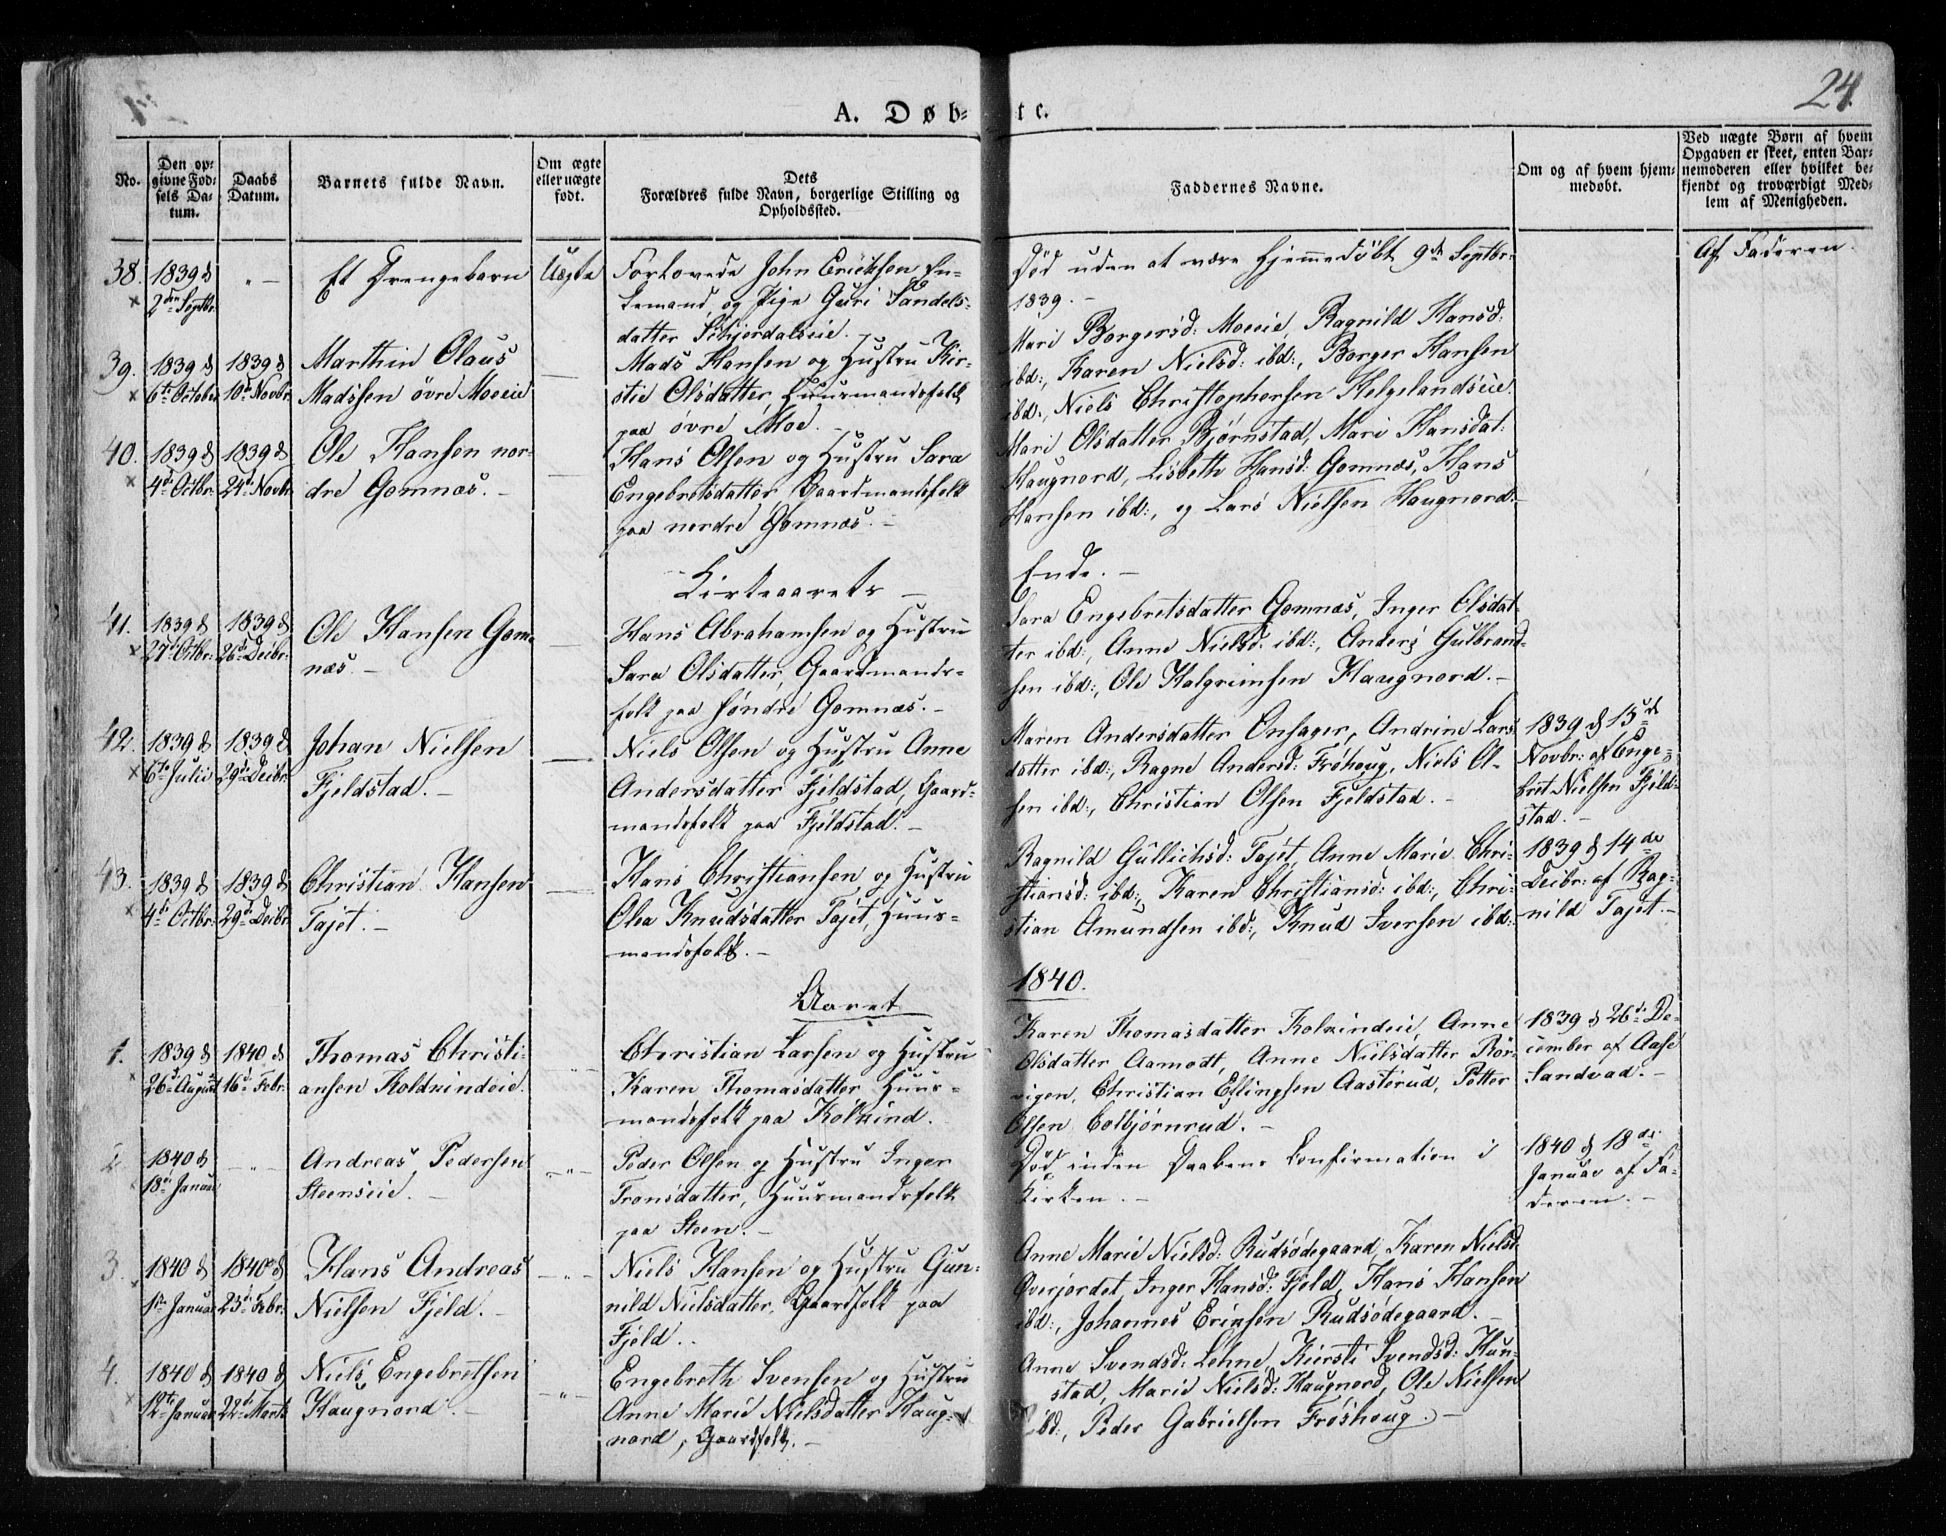 24.
A. Døbte.
No.
Den opgivne Fødsels Datum.
Daabs Datum.
Barnets fulde Navn.
Om ægte eller uægte født.
Dets Forældres fulde Navn, borgerlige Stilling og Opholdssted.
Faddernes Navne.
Om og af hvem hjemmedøbt.
Ved uægte Børn af hvem Opgaven er skeet, enten Barnemoderen eller hvilket bekjendt og troværdigt Medlem af Menigheden.
38.
1839 d
2den Septbr:
-"-
Et Drengebarn
Uægte
Forlovede John Ericksen In-
og Pige Guri
datter
Død uden at være hjemmedøbt 9de Septbr:
1839.-
Af Faderen.
39.
1839 d
6te October
1839 d
10de Novbr:
Marthin Olaus
Madssen övre Moeeie
—
Mads Hansen og Hustru Kir-
stie Olsdatter, Huusmandsfolk
paa övre Moe.-
Mari Borgersd: Moeeie, Ragnild Hansd:
ibd:, Karen Nielsd: ibd:, Borger Hansen
ibd:, Niels Christophersen Helgelandseie.
40.
1839 d
4de Octbr:
1839 d
24de Novbr:
Ole Hansen nor-
dre Gomnæs.-
—
Hans Olsen og Hustru Sara
Engebretsdatter, Gaardmandsfolk
paa nordre Gomnæs.-
Mari Olsdatter Bjørnstad, Mari Hansdat:
Haugnord, Lisbeth Hansd: Gomnæs, Hans
Hansen ibd:, og Lars Nielsen Haugnord.-
Kirkeaarets Ende.-
41.
1839 d
27de Octbr:
1839 d
26de Decbr:
Ole Hansen Gom-
næs.-
—
Hans Abrahamsen og Hustru
Sara Olsdatter, Gaardmands-
folk paa søndre Gomnæs.-
Sara Engebretsdatter Gomnæs, Inger Olsdat-
ter ibd:, Anne Nielsd: ibd:, Anders Gulbrand-
sen ibd:, Ole Halgrimsen Haugnord.-
42.
1839 d
6te Julii
1839 d
29de Decbr:
Johan Nielsen
Fjeldstad.-
—
Niels Olsen og Hustru Anne
Andersdatter Fjeldstad, Gaard-
mandsfolk paa Fjeldstad.-
Maren Andersdatter Onsager, Andrine Lars
datter ibd:, Ragne Andersd: Fröhoug, Niels Ol-
sen ibd:, Christian Olsen Fjeldstad.-
1839 d 15de
Novbr: af Enge-
bret Nielsen Fjeld-
stad.-
43.
1839 d
4de Octbr:
1839 d
29de Decbr:
Christian Hansen
Tajet.-
—
Hans Christiansen og Hustru
Olea Knudsdatter Tajet, Huus-
mandsfolk.-
Ragnild Gullichsd: Tajet, Anne Marie Chri-
stiansd: ibd:, Karen Christiansd: ibd:, Chri-
stian Amundsen ibd:, Knud Iversen ibd:
1839 d 14de
Decbr: af Rag-
nild Tajet.-
Aaret 1840.
1.
1839 d
26de August
1840 d
16de Febr:
Thomas Christi-
ansen Kolkindeie.
-"-
Christian Larsen og Hustru
Karen Thomasdatter, Huus-
mandsfolk paa Kolkind.
Karen Thomasdatter Kolkindeie, Anne
Olsdatter Aamodt, Anne Nielsdatter Rör-
vigen, Christian Ellingsen Aasterud, Petter
Olsen Colbjörnrud.-
1839 d 26de De-
cember af Aase
Sandvad.-
2.
1840 d
18de Januar
-"-
Andreas Pedersen
Steenseie.-
-"-
Peder Olsen og Hustru Inger
Tronsdatter, Huusmandsfolk
paa Steen.-
Død inden Daabens Confirmation i
Kirken.-
1840 d 18de
Januar af Fa-
deren.-
3.
1840 d
1ste Januar
1840 d
23de Febr:
Hans Andreas
Nielsen Fjeld.-
-"-
Niels Hansen og Hustru Gun-
nild Nielsdatter, Gaardfolk paa
Fjeld.-
Anne Marie Nielsd: Rudsödegaard, Karen Nielsd:
Överjordet, Inger Hansd: Fjeld, Hans Hansen
ibd:, Johannes Eriksen Rudsödegaard.-
4.
1840 d
12te Januar
1840 d
22de Marts
Niels Engebrethsen
Haugnord.-
-"-
Engebreth Svensen og Hustru
Anne Marie Nielsdatter Haug-
nord, Gaardfolk.-
Anne Svendsd: Lehne, Kiersti Svendsd: Hun-
stad, Marie Nielsd: Haugnord, Ole Nielsen
ibd:, Peder Gabrielsen Fröshoug.-